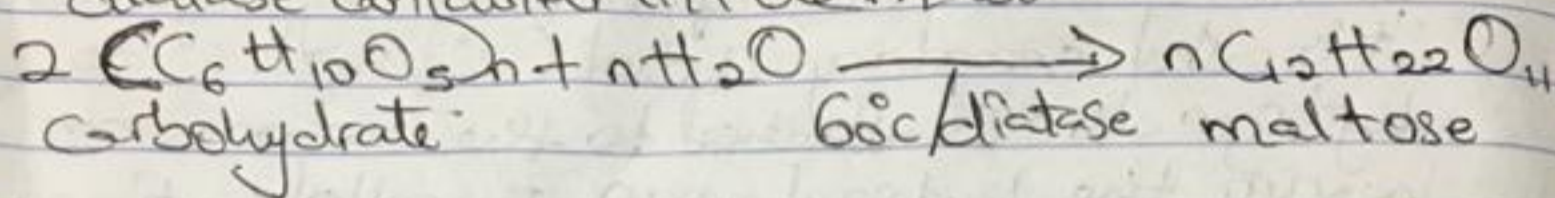 2 (C₆H₁₀O₅)n + nH₂O ⟶ nC₁₂H₂₂O₁₁
Carbohydrate 60°c/diatase maltose